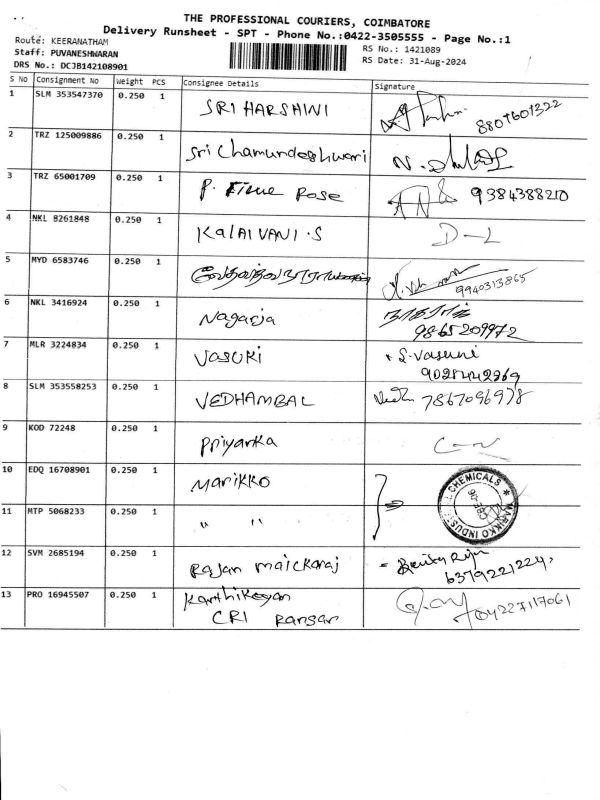 THE PROFESSIONAL COURIERS, COIMBATORE
Delivery Runsheet - SPT - Phone No.:0422-3505555 - Page No.:1
Route: KEERANATHAM
Staff: PUVANESHWARAN
DRS No.: DCJB142108901
RS No.: 1421089
RS Date: 31-Aug-2024
S No Consignment No Weight PCS Consignee Details Signature
1 SLM 353547370 0.250 1 SRI HARSHINI 8807601322
2 TRZ 125009886 0.250 1 Sri Chamundeshwari
3 TRZ 65001709 0.250 1 P. Rose 9384388210
4 NKL 8261848 0.250 1 KalAIVANI.S D-L
5 MYD 6583746 0.250 1 9940313865
6 NKL 3416924 0.250 1 Nagaraja நாகராஜ்
9865209972
7 MLR 3224834 0.250 1 VASUKI S. Vasuki
8 SLM 353558253 0.250 1 VEDHAMBAL 7867096978
9 KOD 72248 0.250 1 Priyanka
10 EDQ 16708901 0.250 1 MARIKKO
MARIKKO INDUS CHEMICALS
11 MTP 5068233 0.250 1 " "
12 SVM 2685194 0.250 1 Rajan maickaraj
6379221224
13 PRO 16945507 0.250 1 Karthikeyan
CRI 04227117061